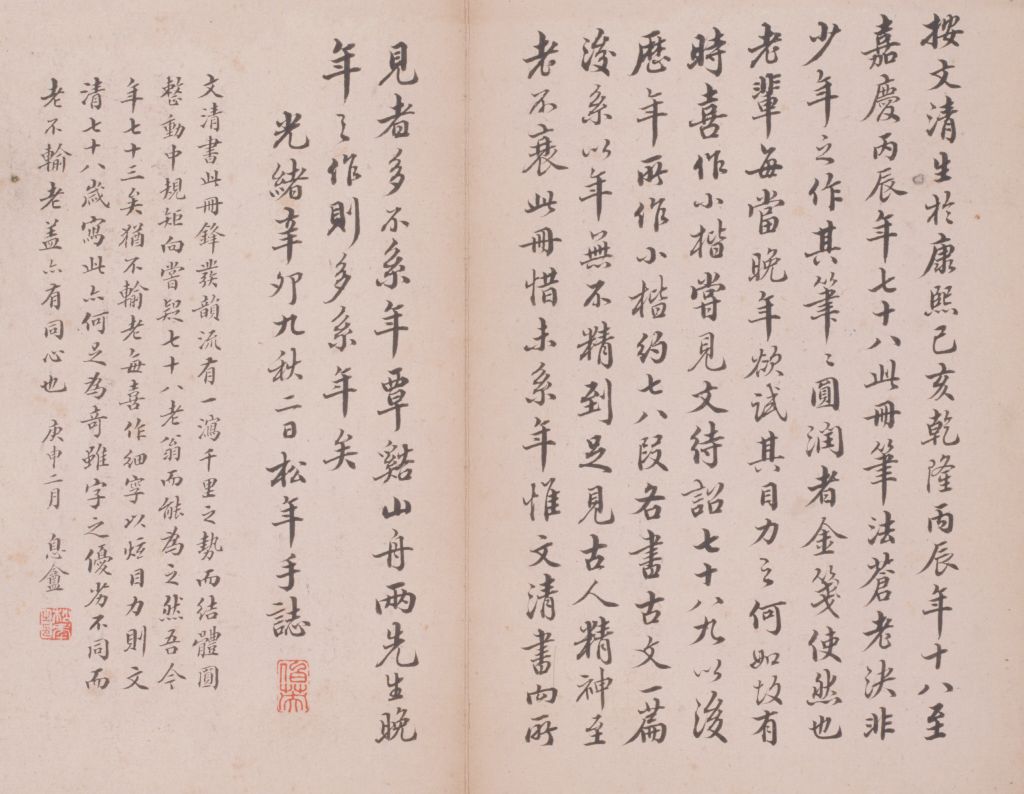 按文清生於康熙己亥乾隆丙辰年十八至
嘉慶丙辰年七十八此冊筆法蒼老決非
少年之作其筆〻圓潤者金箋使然也
老輩每當晚年欲試其目力之何如故有
時喜作小楷嘗見文待詔七十八九以後
歷年所作小楷約七八段各書古文一篇
後系以年無不精到足見古人精神至
老不衰此冊惜未系年惟文清書向所
見者多不系年覃谿山舟兩先生晚
年之作則多系年矣
光緒辛卯九秋二日松年手誌
文清書此冊鋒發韻流有一瀉千里之勢而結體圓
整動中規矩向嘗疑七十八老翁而能為之然吾今
年七十三矣猶不輸老每喜作細字以炬目力則文
清七十八歲寫此亦何足為奇雖字之優劣不同而
老不輸老蓋亦有同心也 庚申二月 息盦